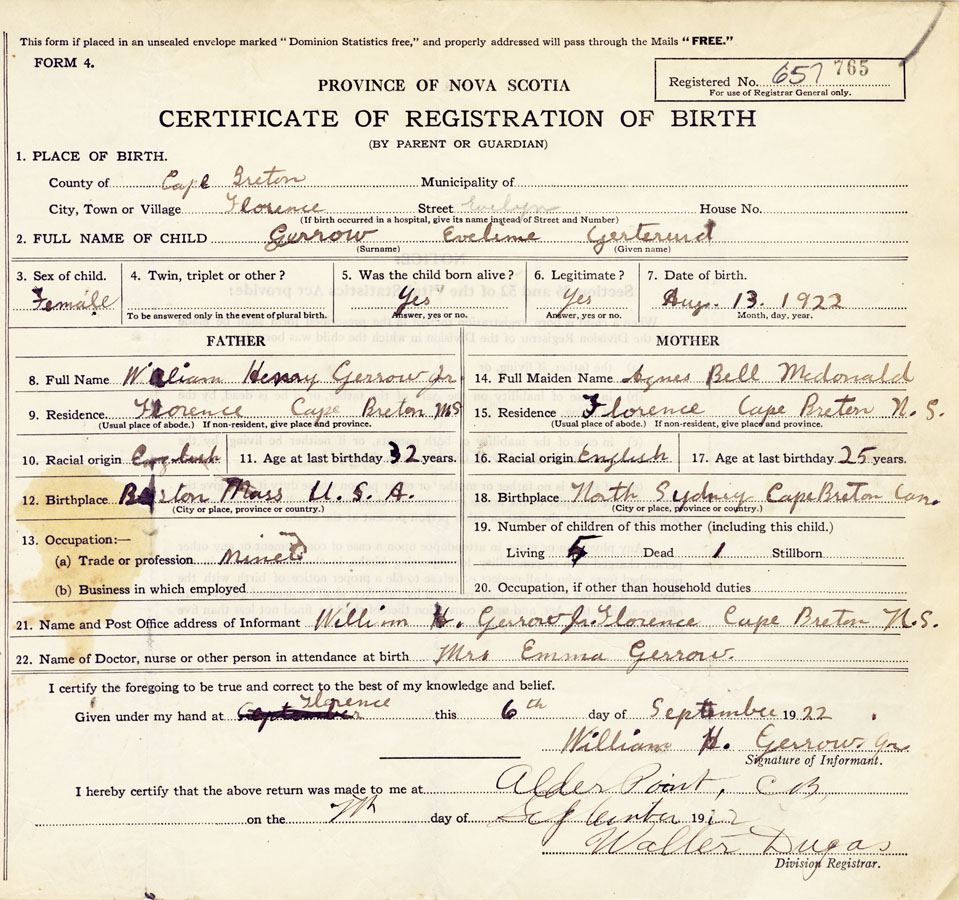 This form if placed in an unsealed envelope marked "Dominion Statistics free," and properly addressed will pass through the Mails "FREE."
FORM 4.
Registered No. 657 765
For use of Registrar General only.
PROVINCE OF NOVA SCOTIA
CERTIFICATE OF REGISTRATION OF BIRTH
(BY PARENT OR GUARDIAN)
1. PLACE OF BIRTH.
County of Cape Breton Municipality of
City, Town or Village Florence Street Evelyn House No.
(If birth occurred in a hospital, give its name instead of Street and Number)
2. FULL NAME OF CHILD Gerrow Eveline Gerterud
(Surname) (Given name)
3. Sex of child. 4. Twin, triplet or other? 5. Was the child born alive? 6. Legitimate? 7. Date of birth.
Female Yes Yes Aug. 13. 1922
To be answered only in the event of plural birth. Answer, yes or no. Answer, yes or no. Month, day, year.
FATHER
8. Full Name William Henry Gerrow Jr
9. Residence. Florence Cape Breton N S
(Usual place of abode.) If non-resident, give place and province.
10. Racial origin English 11. Age at last birthday 32 years.
12. Birthplace Boston Mass U. S. A.
(City or place, province or country.)
13. Occupation:—
(a) Trade or profession Miner
(b) Business in which employed
MOTHER
14. Full Maiden Name Agnes Bell Mcdonald
15. Residence Florence Cape Breton N. S.
(Usual place of abode.) If non-resident, give place and province.
16. Racial origin English 17. Age at last birthday 25 years.
18. Birthplace North Sydney Cape Breton Can.
(City or place, province or country.)
19. Number of children of this mother (including this child.)
Living 5 Dead 1 Stillborn
20. Occupation, if other than household duties
21. Name and Post Office address of Informant William H. Gerrow Jr. Florence Cape Breton N.S.
22. Name of Doctor, nurse or other person in attendance at birth Mrs Emma Gerrow.
I certify the foregoing to be true and correct to the best of my knowledge and belief.
Florence
Given under my hand at September this 6th day of September 1922
William H. Gerrow Jr.
Signature of Informant.
I hereby certify that the above return was made to me at Alder Point, C B,
on the 7th day of September 1922
Walter Dugas
Division Registrar.